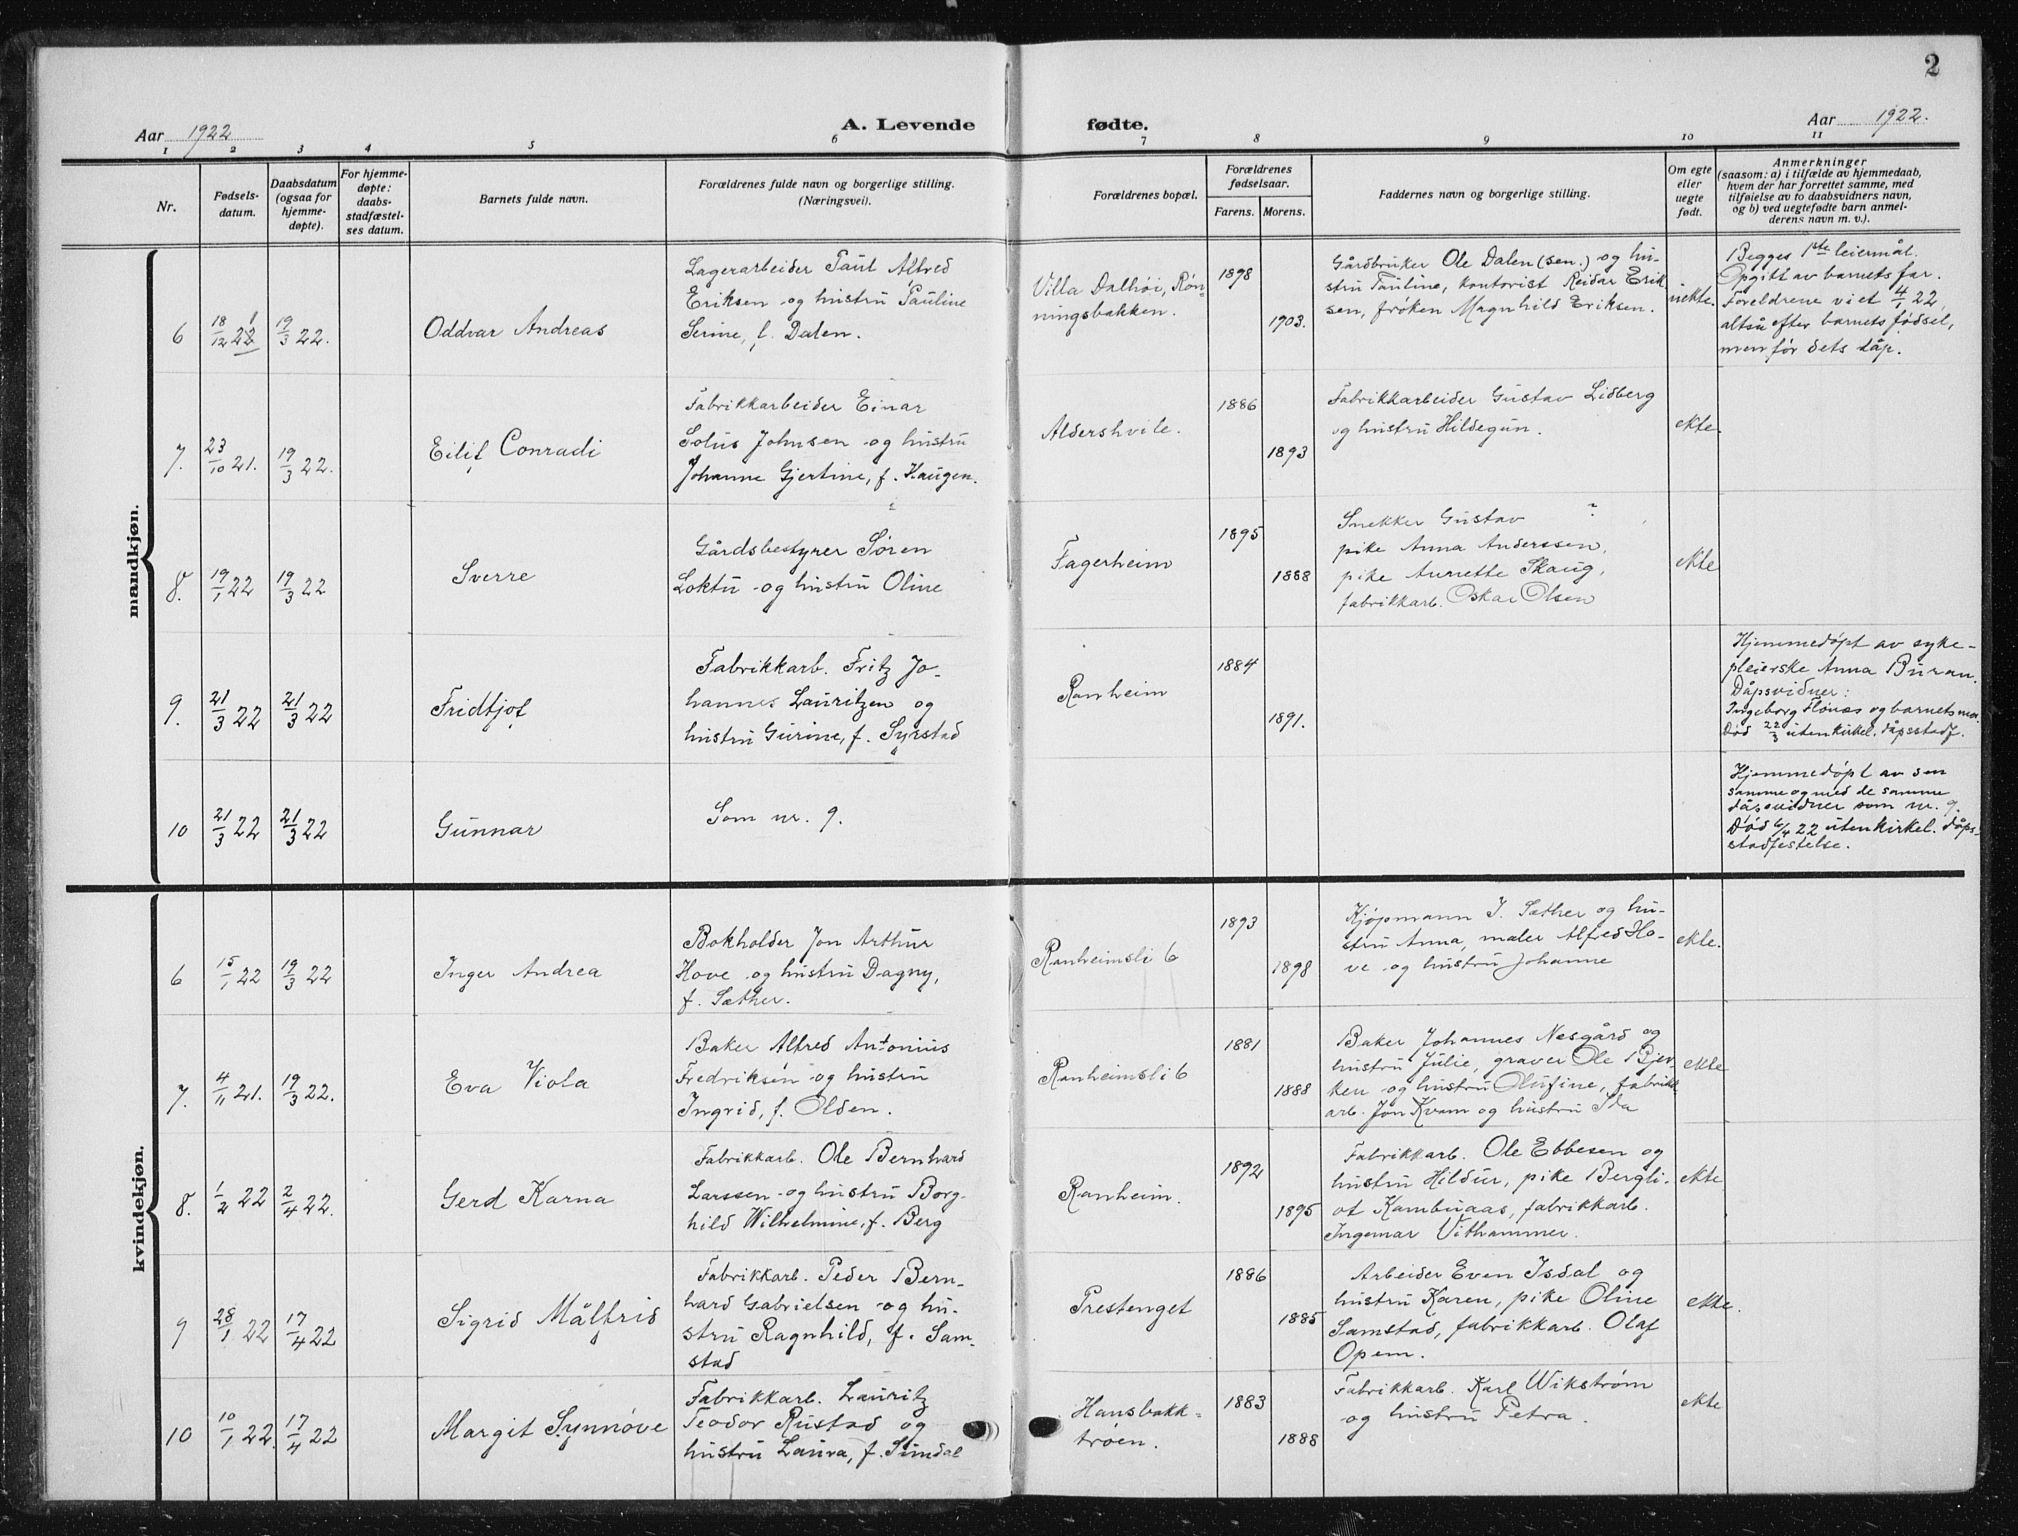 2
Aar 1922
A. Levende fødte.
Aar 1922.
1 2 3 4 5 6 7 8 9 10 11
Nr.
Fødsels-
datum.
Daabsdatum
(ogsaa for
hjemme-
døpte).
For hjemme-
døpte:
daabs-
stadfæstel-
ses datum.
Barnets fulde navn.
Forældrenes fulde navn og borgerlige stilling.
(Næringsvei).
Forældrenes bopæl.
Forældrenes
fødselsaar.
Farens. Morens.
Faddernes navn og borgerlige stilling.
Om egte
eller
uegte
født.
Anmerkninger
(saasom: a) i tilfælde av hjemmedaab,
hvem der har forrettet samme, med
tilføielse av to daabsvidners navn,
og b) ved uegtefødte barn anmel-
derens navn m. v.).
mandkjøn.
6
18/12 22
19/3 22.
Oddvar Andreas
Lagerarbeider Paul Alfred
Eriksen og hustru Pauline
Serine, f. Dalen.
Villa Dalhøi, Røn-
ningsbakken.
1898
1903.
Gårdbruker Ole Dalen (sen.) og hu-
stru Pauline, kontorist Reidar Erik
sen, frøken Magnhild Eriksen.
uekte.
Begges 1ste leiermål.
Opgitt av barnets far.
Foreldrene viet 4/1 22,
altså efter barnets fødsel,
men før dets dåp.
7.
23/10 21.
19/3 22.
Eilif Conradi
Fabrikkarbeider Einar
Solus Johnsen og hustru
Johanne Gjertine, f. Haugen.
Aldershvile.
1886
1893
Fabrikkarbeider Gustav Lidberg
og hustru Hildegun.
ekte.
8.
19/1 22
19/3 22
Sverre
Gårdsbestyrer Søren
Loktu og hustru Oline
Fagerheim
1895
1888
Snekker Gustav ?
pike Anna Anderssen,
pike Annette Skaug,
fabrikkarb. Oskar Olsen
ekte
9.
21/3 22
21/3 22
Fridtjof
Fabrikkarb. Fritz Jo-
hannes Lauritzen og
hustru Gurine, f. Syrstad
Ranheim
1884
1891.
Hjemmedøpt av syke-
pleierske Anna Buran.
Dåpsvidner:
Ingeborg Flønæs og barnets mor.
Død 22/3 uten kirkel. dåpsstadf.
10
21/3 22
21/3 22
Gunnar
Som nr. 9.
Hjemmedøpt av den
samme og med de samme
dåpsvidner som nr. 9.
Død 6/4 22 uten kirkel. dåps-
stadfestelse.
kvindekjøn.
6
15/1 22
19/3 22
Inger Andrea
Bokholder Jon Arthur
Hove og hustru Dagny,
f. Sæther.
Ranheimsli 6
1893
1898
Kjøpmann I. Sæther og hu-
stru Anna, maler Alfred Ho-
ve og hustru Johanne
ekte.
7.
4/11 21.
19/3 22.
Eva Viola
Baker Alfred Antonius
Fredriksen og hustru
Ingrid, f. Olden.
Ranheimsli 6
1881
1888
Baker Johannes Nesgård og
hustru Julie, graver Ole Bjer-
ken og hustru Olufine, fabrikk-
arb. Jon Kvam og hustru Ida
ekte
8.
1/2 22
2/4 22.
Gerd Karna
Fabrikkarb. Ole Bernhard
Larssen og hustru Borg-
hild Wilhelmine, f. Berg
Ranheim.
1892
1895
Fabrikkarb. Ole Ebbesen og
hustru Hildur, pike Bergli-
ot Kambuaas, fabrikkarb.
Ingemar Vithammer.
ekte
9
28/1 22
17/4 22
Sigrid Målfrid
Fabrikkarb. Peder Bern-
hard Gabrielsen og hu-
stru Ragnhild, f. Sam-
stad
Prestenget
1886
1885
Arbeider Even Isdal og
hustru Karen, pike Oline
Samstad, fabrikkarb. Olaf
Opem.
ekte.
10
10/1 22.
17/4 22
Margit Synnøve
Fabrikkarb. Lauritz
Teodor Rustad og
hustru Laura, f. Sundal
Hansbakk-
trøen.
1883
1888
Fabrikkarb. Karl Wikstrøm
og hustru Petra.
ekte